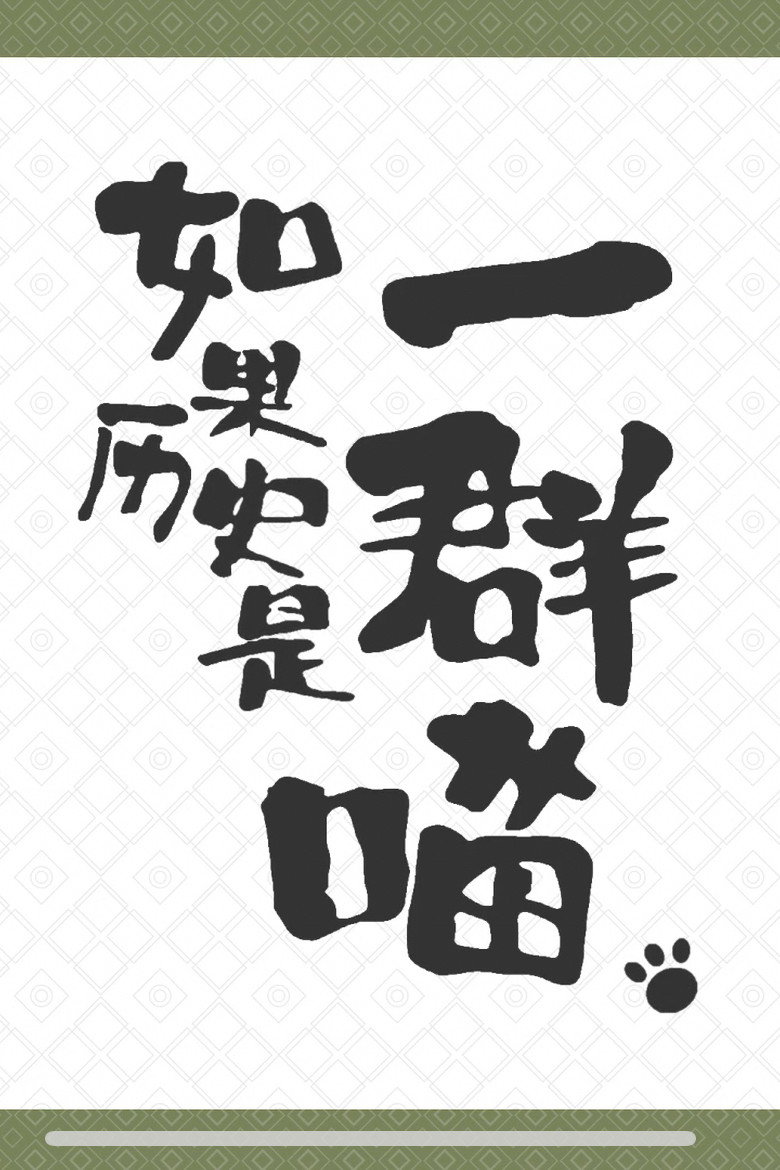 如果历史是
一群喵